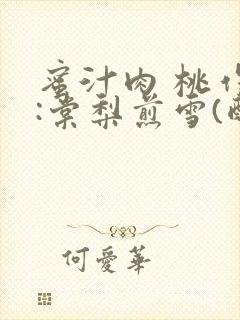 蜜汁肉桃作
:棠梨煎雪(
何愛華